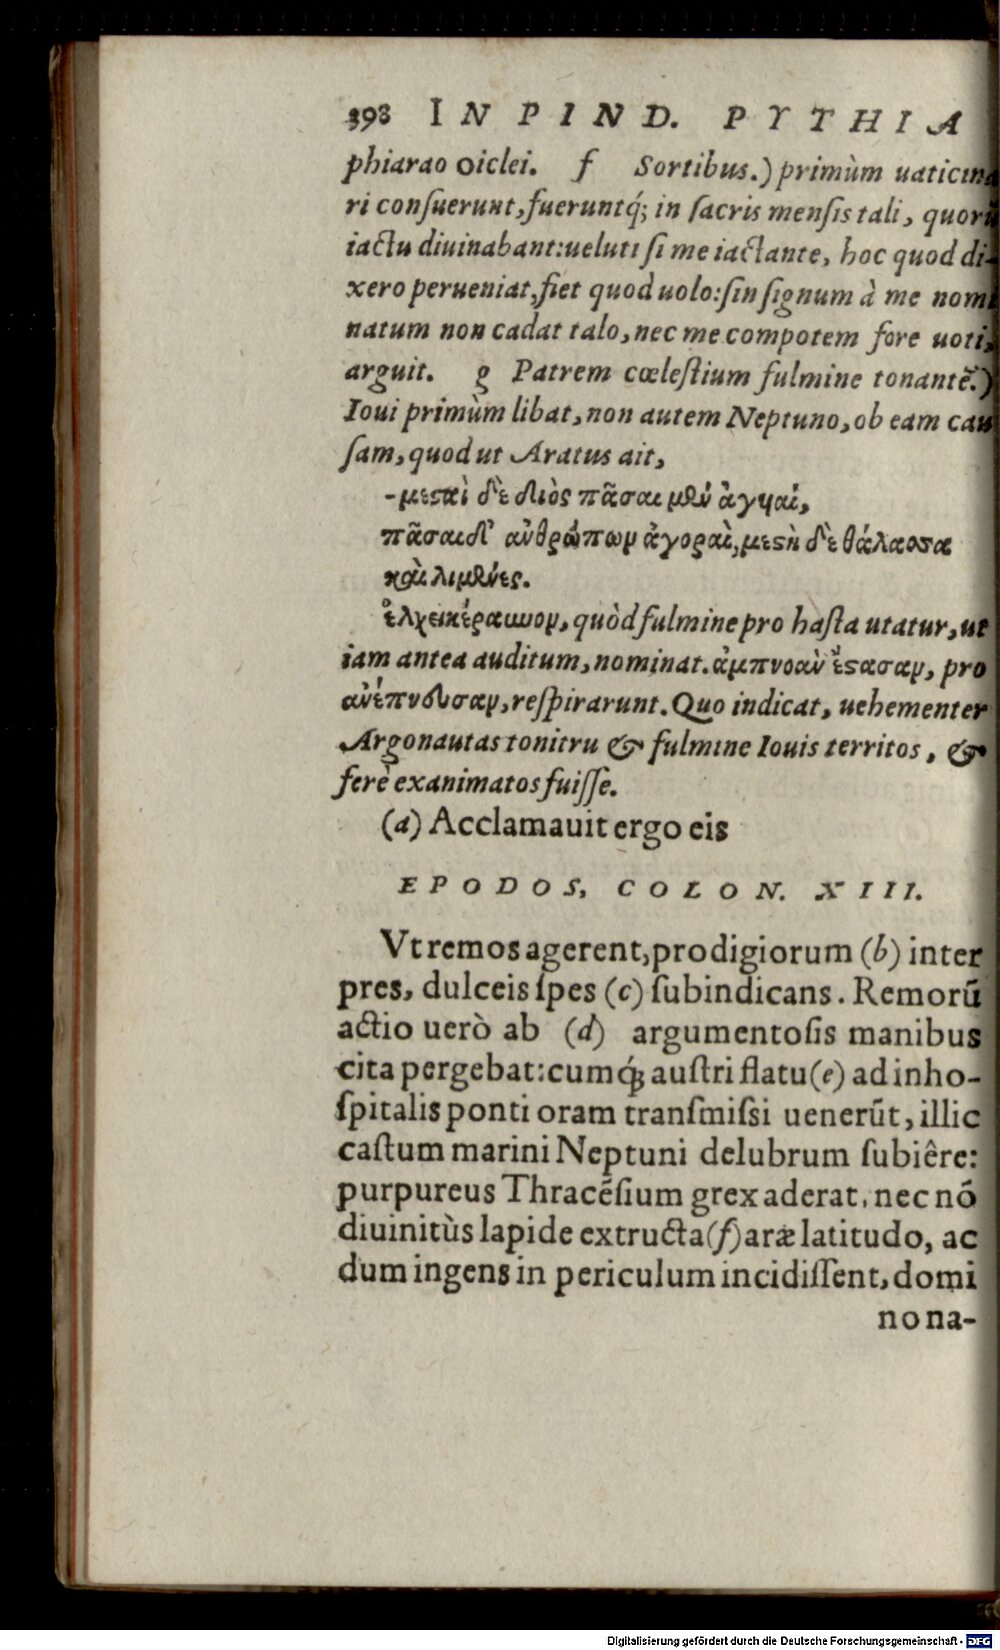 398 IN PIND. PYTHIA
phiarao Oiclei. f Sortibus.) primùm uaticina
ri conſuerunt, fueruntq́; in ſacris menſis tali, quorũ
iactu diuinabant: ueluti ſi me iactante, hoc quod di-
xero perueniat, fiet quod uolo: ſin ſignum à me nomi
natum non cadat talo, nec me compotem fore uoti,
arguit. g Patrem cœleſtium fulmine tonantẽ.)
Ioui primùm libat, non autem Neptuno, ob eam cau
ſam, quod ut Aratus ait,
-μεϛαὶ δὲ διὸς πᾶσαι μὲν ἀγυιαί,
πᾶσαι δ' ἀνθρώπων ἀγοραὶ, μεϛὴ δὲ θάλασσα
καὶ λιμένες.
ἐλχεικέραυνον, quòd fulmine pro haſta utatur, ut
iam antea auditum, nominat. ἀμπνοὰν ἔϛασαν, pro
ἀνέπνευσαν, reſpirarunt. Quo indicat, uehementer
Argonautas tonitru & fulmine Iouis territos, &
ferè exanimatos fuiſſe.
(a) Acclamauit ergo eis
EPODOS, COLON. XIII.
Vt remos agerent, prodigiorum (b) inter
pres, dulceis ſpes (c) ſubindicans. Remorũ
actio uerò ab (d) argumentoſis manibus
cita pergebat: cumq́; auſtri flatu (e) ad inho-
ſpitalis ponti oram tranſmiſsi uenerũt, illic
caſtum marini Neptuni delubrum ſubiêre:
purpureus Thracẽſium grex aderat, nec nõ
diuinitùs lapide extructa (f) aræ latitudo, ac
dum ingens in periculum incidiſſent, domi
no na-
Digitalisierung gefördert durch die Deutsche Forschungsgemeinschaft - DFG